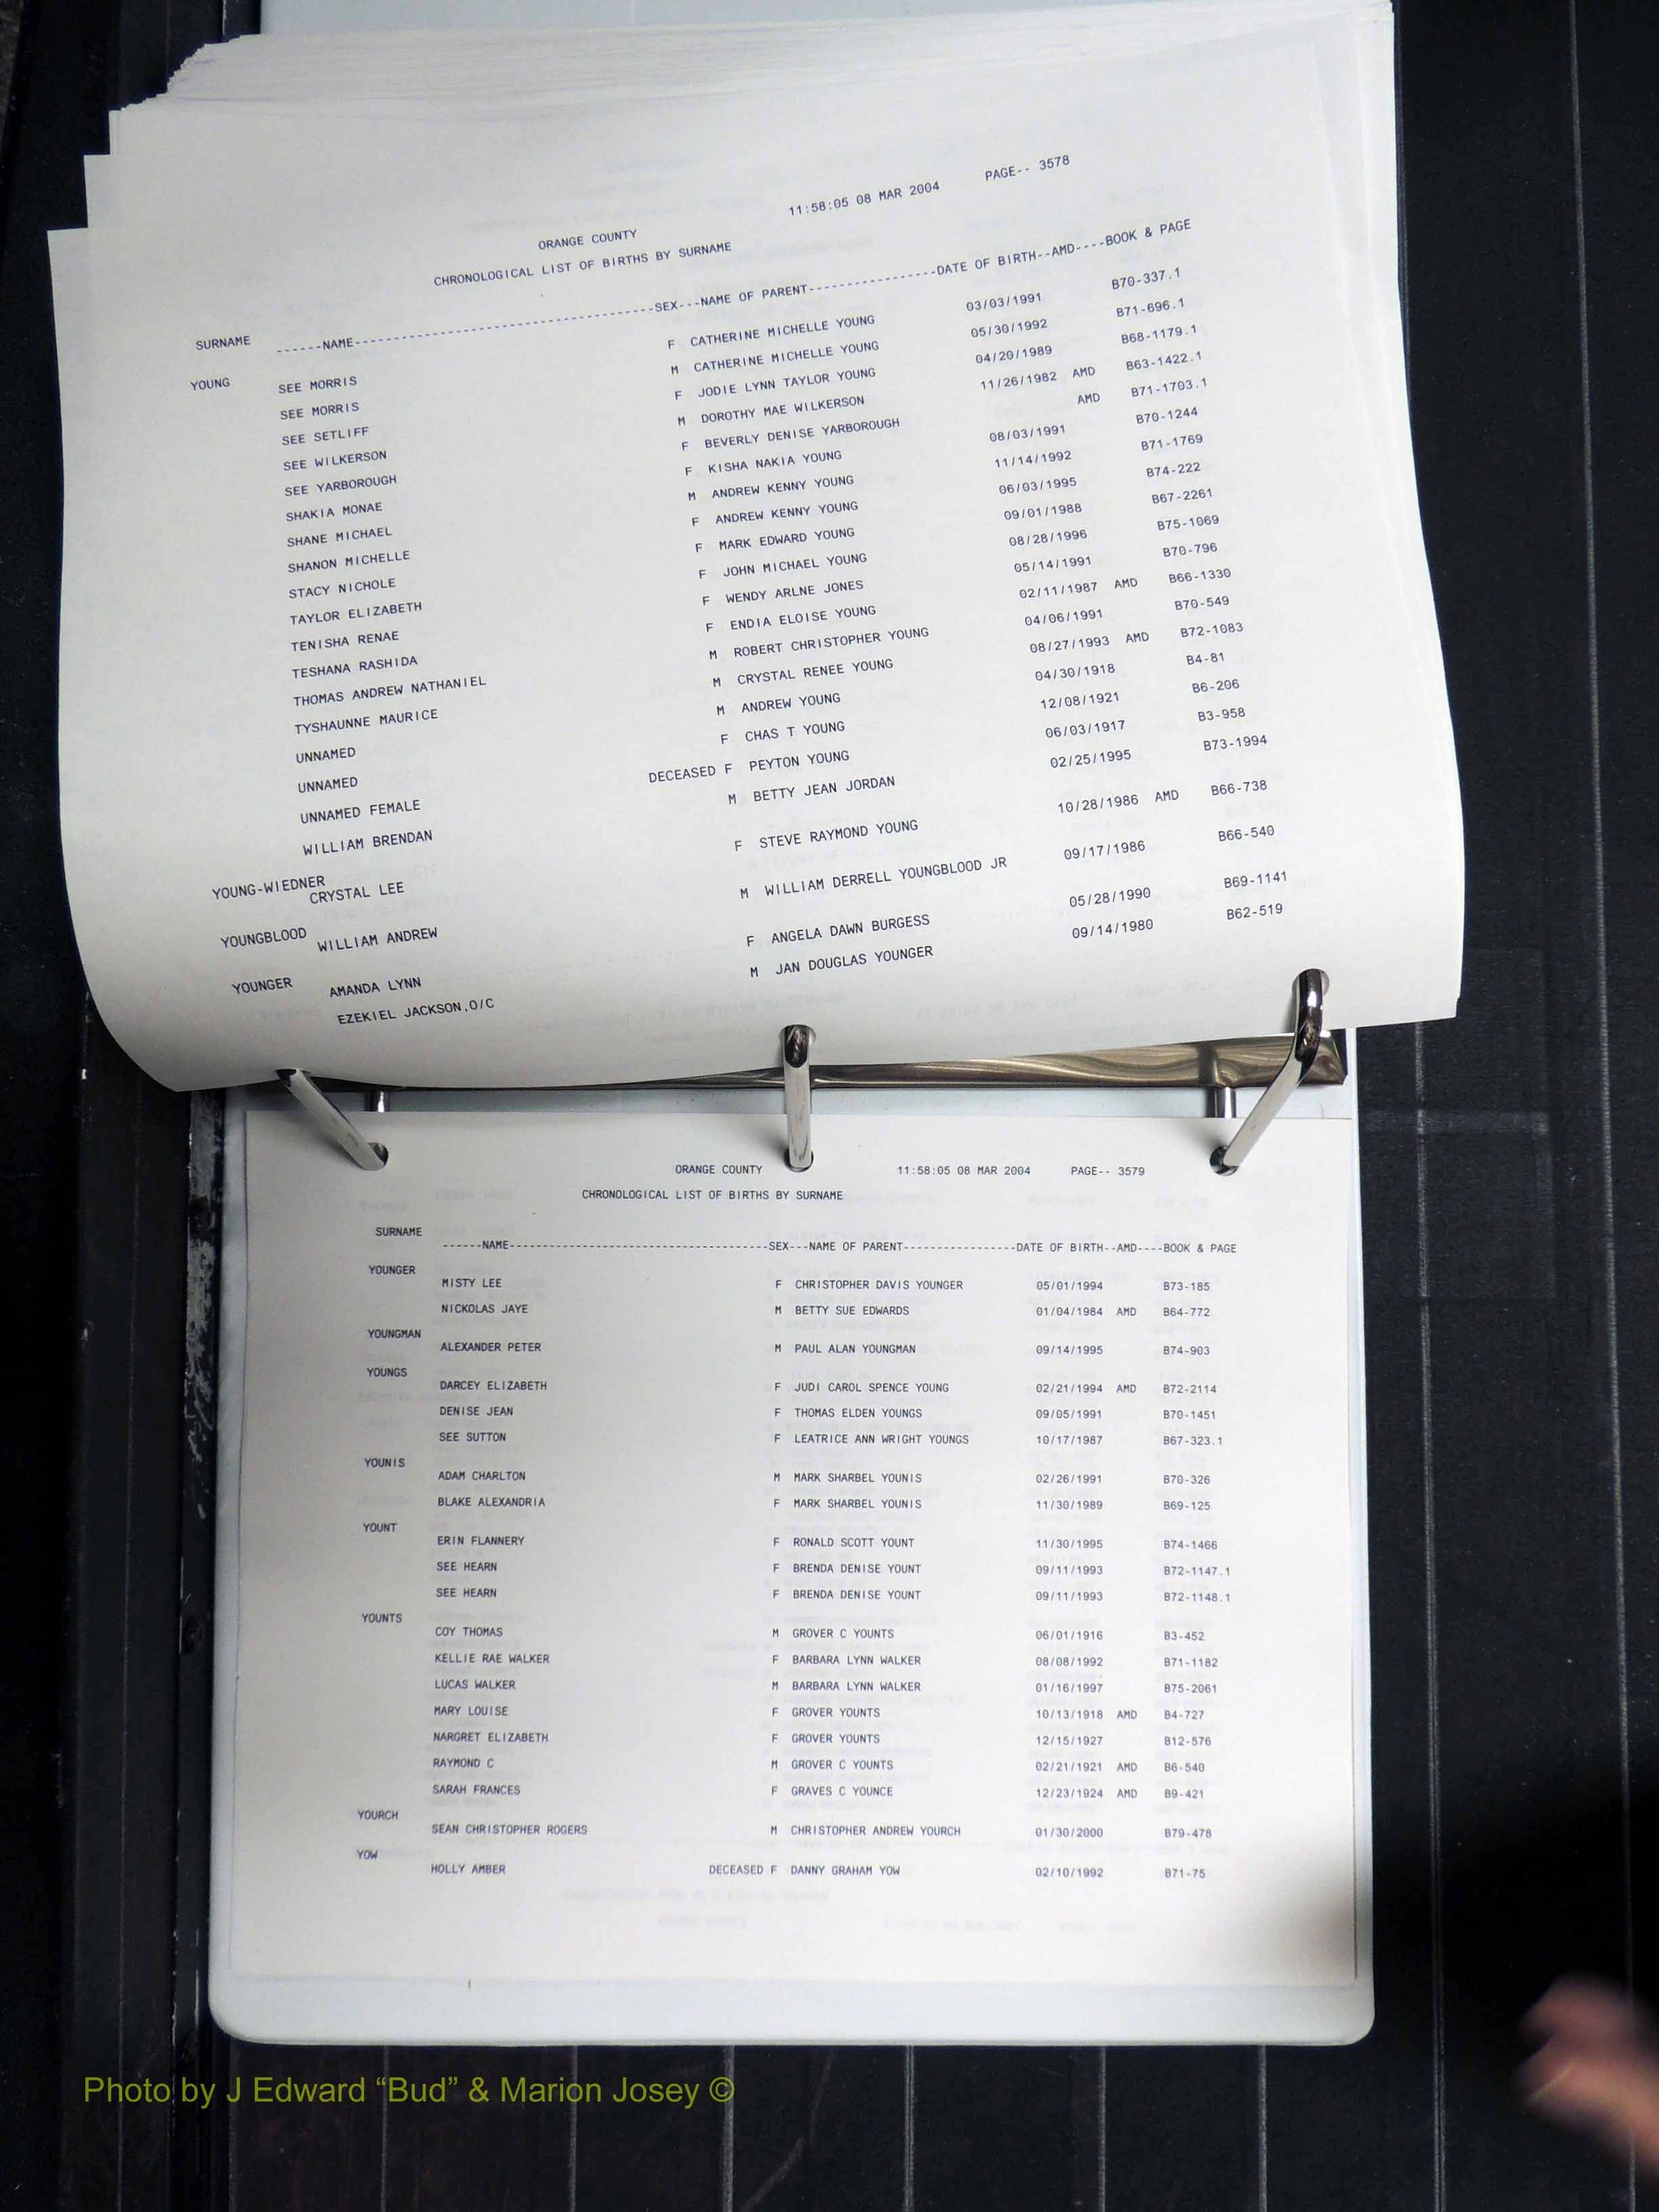 ORANGE COUNTY 11:58:05 08 MAR 2004 PAGE-- 3578
CHRONOLOGICAL LIST OF BIRTHS BY SURNAME
SURNAME ------NAME----------------------------------------SEX---NAME OF PARENT-----------------DATE OF BIRTH--AMD----BOOK & PAGE
YOUNG
SEE MORRIS F CATHERINE MICHELLE YOUNG 03/03/1991 B70-337.1
SEE MORRIS M CATHERINE MICHELLE YOUNG 05/30/1992 B71-696.1
SEE SETLIFF F JODIE LYNN TAYLOR YOUNG 04/20/1989 B68-1179.1
SEE WILKERSON M DOROTHY MAE WILKERSON 11/26/1982 AMD B63-1422.1
SEE YARBOROUGH F BEVERLY DENISE YARBOROUGH AMD B71-1703.1
SHAKIA MONAE F KISHA NAKIA YOUNG 08/03/1991 B70-1244
SHANE MICHAEL M ANDREW KENNY YOUNG 11/14/1992 B71-1769
SHANON MICHELLE F ANDREW KENNY YOUNG 06/03/1995 B74-222
STACY NICHOLE F MARK EDWARD YOUNG 09/01/1988 B67-2261
TAYLOR ELIZABETH F JOHN MICHAEL YOUNG 08/28/1996 B75-1069
TENISHA RENAE F WENDY ARLNE JONES 05/14/1991 B70-796
TESHANA RASHIDA F ENDIA ELOISE YOUNG 02/11/1987 AMD B66-1330
THOMAS ANDREW NATHANIEL M ROBERT CHRISTOPHER YOUNG 04/06/1991 B70-549
TYSHAUNNE MAURICE M CRYSTAL RENEE YOUNG 08/27/1993 AMD B72-1083
UNNAMED M ANDREW YOUNG 04/30/1918 B4-81
UNNAMED F CHAS T YOUNG 12/08/1921 B6-206
UNNAMED FEMALE DECEASED F PEYTON YOUNG 06/03/1917 B3-958
WILLIAM BRENDAN M BETTY JEAN JORDAN 02/25/1995 B73-1994
YOUNG-WIEDNER
CRYSTAL LEE F STEVE RAYMOND YOUNG 10/28/1986 AMD B66-738
YOUNGBLOOD
WILLIAM ANDREW M WILLIAM DERRELL YOUNGBLOOD JR 09/17/1986 B66-540
YOUNGER
AMANDA LYNN F ANGELA DAWN BURGESS 05/28/1990 B69-1141
EZEKIEL JACKSON,O/C M JAN DOUGLAS YOUNGER 09/14/1980 B62-519
ORANGE COUNTY 11:58:05 08 MAR 2004 PAGE-- 3579
CHRONOLOGICAL LIST OF BIRTHS BY SURNAME
SURNAME
------NAME----------------------------------------SEX---NAME OF PARENT-----------------DATE OF BIRTH--AMD----BOOK & PAGE
YOUNGER
MISTY LEE F CHRISTOPHER DAVIS YOUNGER 05/01/1994 B73-185
NICKOLAS JAYE M BETTY SUE EDWARDS 01/04/1984 AMD B64-772
YOUNGMAN
ALEXANDER PETER M PAUL ALAN YOUNGMAN 09/14/1995 B74-903
YOUNGS
DARCEY ELIZABETH F JUDI CAROL SPENCE YOUNG 02/21/1994 AMD B72-2114
DENISE JEAN F THOMAS ELDEN YOUNGS 09/05/1991 B70-1451
SEE SUTTON F LEATRICE ANN WRIGHT YOUNGS 10/17/1987 B67-323.1
YOUNIS
ADAM CHARLTON M MARK SHARBEL YOUNIS 02/26/1991 B70-326
BLAKE ALEXANDRIA F MARK SHARBEL YOUNIS 11/30/1989 B69-125
YOUNT
ERIN FLANNERY F RONALD SCOTT YOUNT 11/30/1995 B74-1466
SEE HEARN F BRENDA DENISE YOUNT 09/11/1993 B72-1147.1
SEE HEARN F BRENDA DENISE YOUNT 09/11/1993 B72-1148.1
YOUNTS
COY THOMAS M GROVER C YOUNTS 06/01/1916 B3-452
KELLIE RAE WALKER F BARBARA LYNN WALKER 08/08/1992 B71-1182
LUCAS WALKER M BARBARA LYNN WALKER 01/16/1997 B75-2061
MARY LOUISE F GROVER YOUNTS 10/13/1918 AMD B4-727
NARGRET ELIZABETH F GROVER YOUNTS 12/15/1927 B12-576
RAYMOND C M GROVER C YOUNTS 02/21/1921 AMD B6-540
SARAH FRANCES F GRAVES C YOUNCE 12/23/1924 AMD B9-421
YOURCH
SEAN CHRISTOPHER ROGERS M CHRISTOPHER ANDREW YOURCH 01/30/2000 B79-478
YOW
HOLLY AMBER DECEASED F DANNY GRAHAM YOW 02/10/1992 B71-75
Photo by J Edward “Bud” & Marion Josey ©